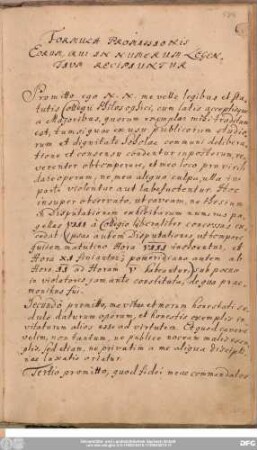 FORMULA PROMISSIONIS
EORUM, QUI IN NUMERUM LEGEN,
TIUM RECIPIUNTUR
Promitto ego N. N. me velle legibus et sta,
tutis Collegii Philosophici, cum latis acceptisque
a Majoribus, quorum exemplar mihi traditum
est, tum si quae in usum publicorum studio,
rum et dignitate Scholae communi delibera,
tione et consensu condentur inposterum, re,
verenter obtemperare, et meo loco pro virili
dare operam, ne mea aliqua culpa, ulla in
parte violentur aut labefactentur. Hoc
insuper observato, ut caveam, ne Thesium
et Disputationum exhibitarum numerus pa,
gellas VIII à Collegio liberaliter concessas ex,
cedat
quidem matutino Hora VIII inchoentur, et
Hora XI finiantur; pomeridiano autem ab
Hora II ad Horam V habeantur, sub poena
in violatores jamante constituta, de qua prae,
monitus fui.
Secundò promitto, me vitae et morum honestati se,
dulo daturum operam, et honestis exemplis in,
vitaturum alios esse ad virtutem. Et quod cavere
velim, non tantum, ne publice noceam malis exem,
plis, sed etiam, ne privatim a me aliqua discipli,
nae laxatio oriatur.
Tertio promitto, quod fidei meae commendatos